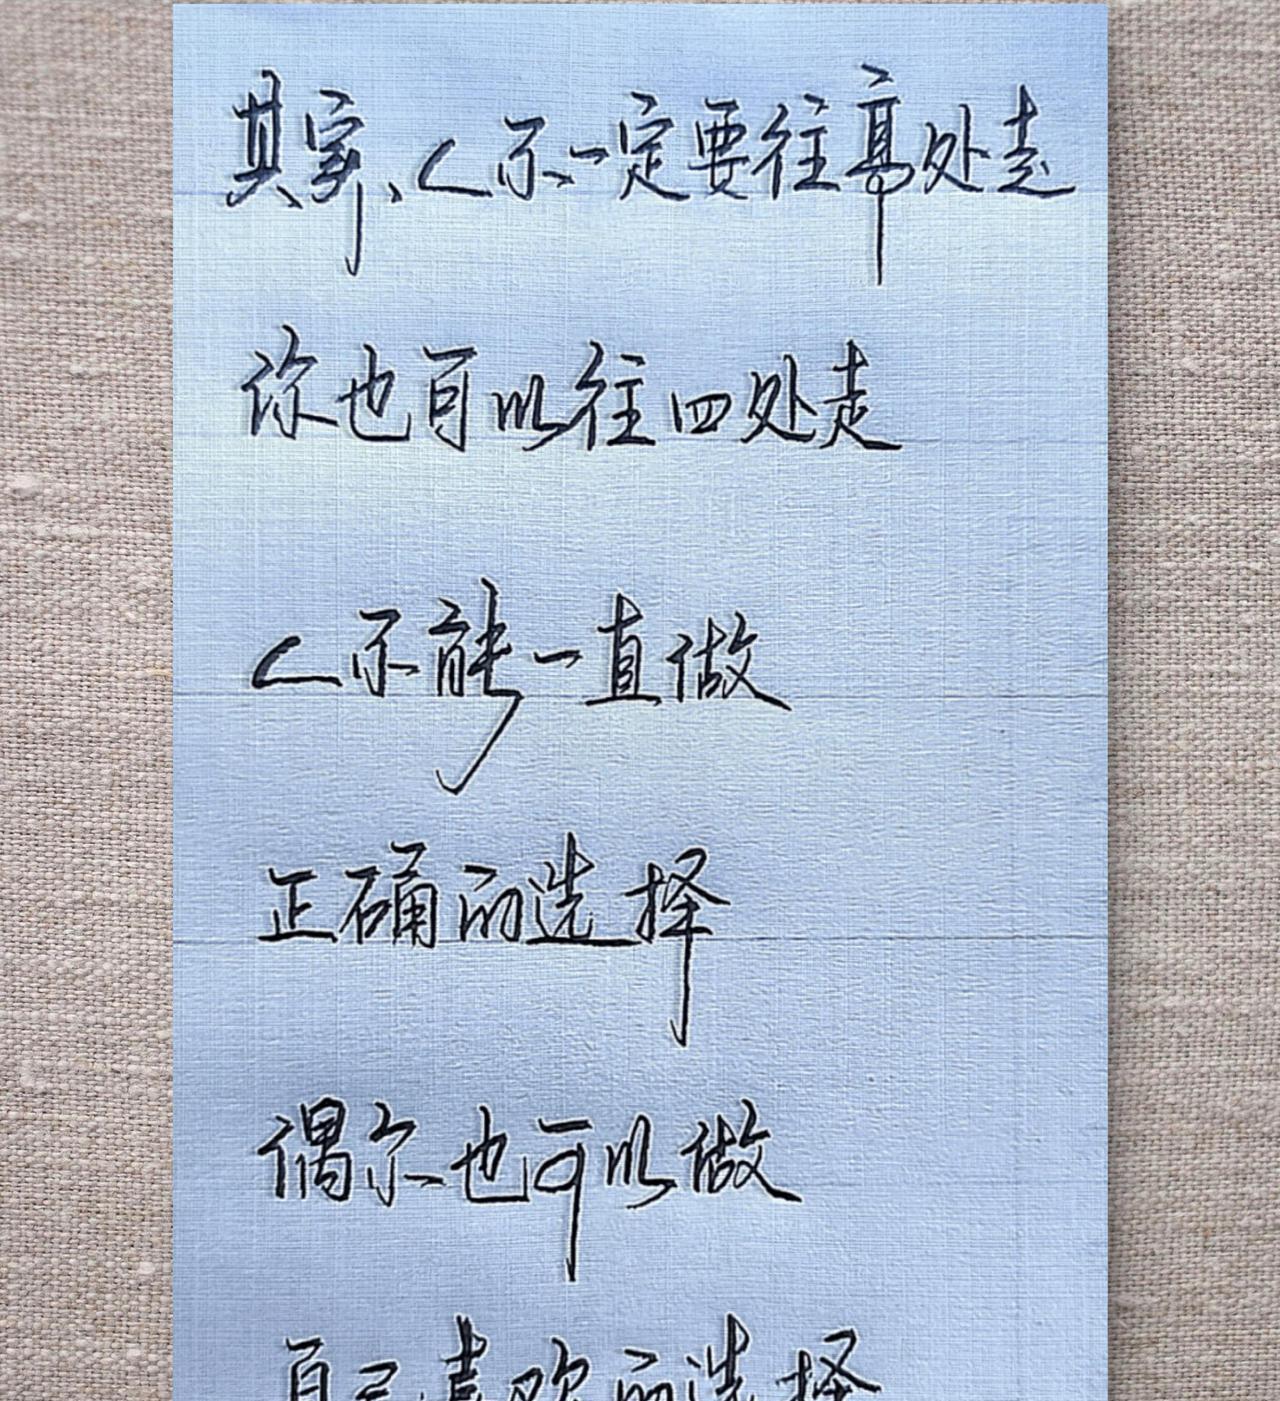 其实、人不一定要往高处走
你也可以往四处走
人不能一直做
正确的选择
偶尔也可以做
自己喜欢的选择